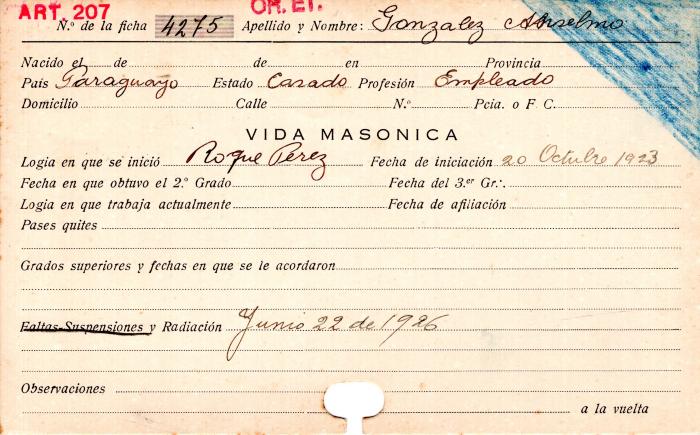 ART. 207 OR. ET.
N.º de la ficha 4275 Apellido y Nombre: Gonzalez Anselmo
Nacido el de de en Provincia
País Paraguayo Estado Casado Profesión Empleado
Domicilio Calle N.º Pcia. o F. C.
VIDA MASONICA
Logia en que se inició Roque Perez Fecha de iniciación 20 Octubre 1923
Fecha en que obtuvo el 2.º Grado Fecha del 3.er Gr∴
Logia en que trabaja actualmente Fecha de afiliación
Pases quites
Grados superiores y fechas en que se le acordaron
Faltas-Suspensiones y Radiación Junio 22 de 1926
Observaciones
a la vuelta